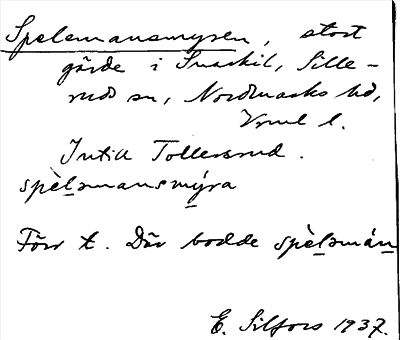 Spelemansmyren, stort
gärde i Snarkil, Sille-
ruds sn, Nordmarks hd,
Vrml l.
Intill Tollersrud.
spèlamansmýra
Förr t. Där bodde spèlamán
E. Silfors 1937.